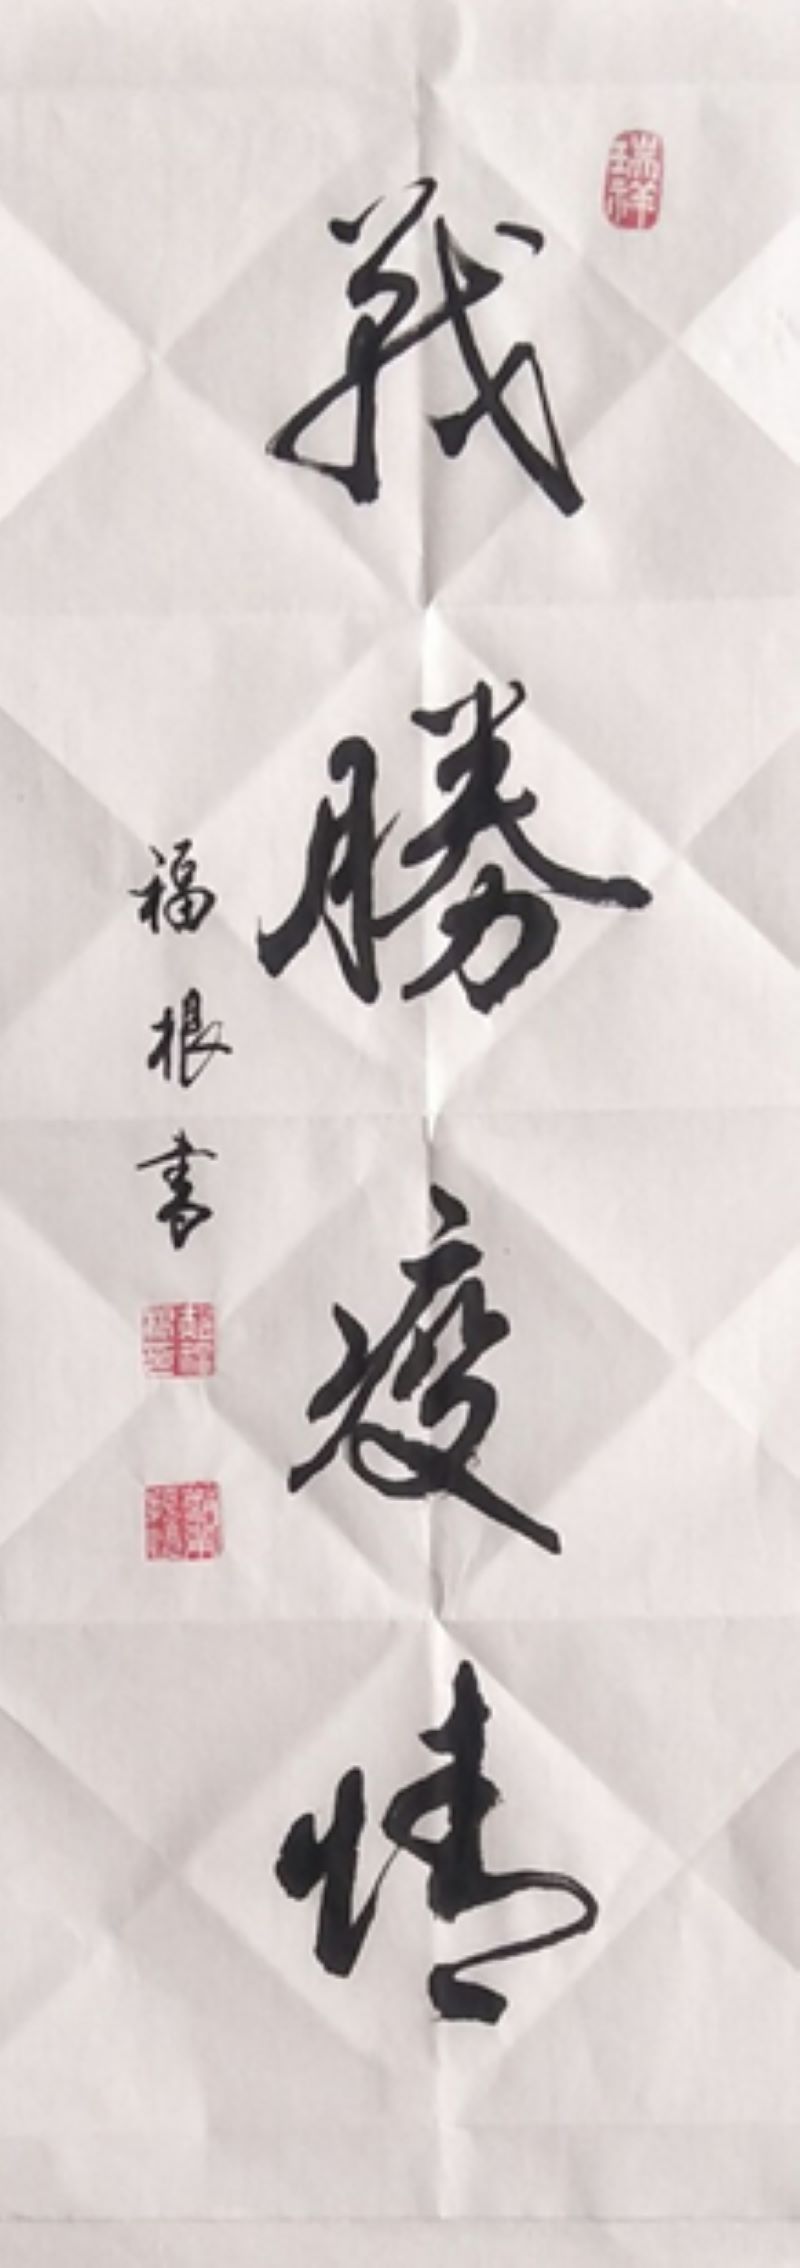 戰勝疫情
福根書
瑞祥